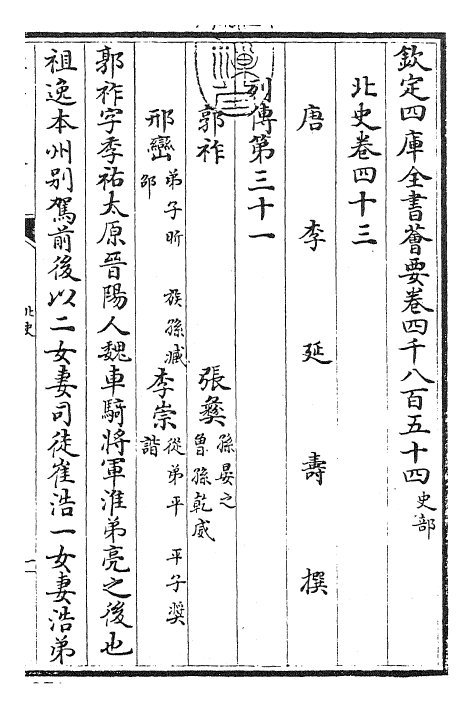 欽定四庫全書薈要卷四千八百五十四史部
北史卷四十三
唐李延壽撰
列傳第三十一
郭祚
張彝孫晏之
曾孫乾威
邢巒弟子昕 族孫臧
邵
李崇從弟平 平子奬
諧
郭祚字季祐太原晉陽人魏車騎將軍淮弟亮之後也
祖逸本州别駕前後以二女妻司徒崔浩一女妻浩弟
北史